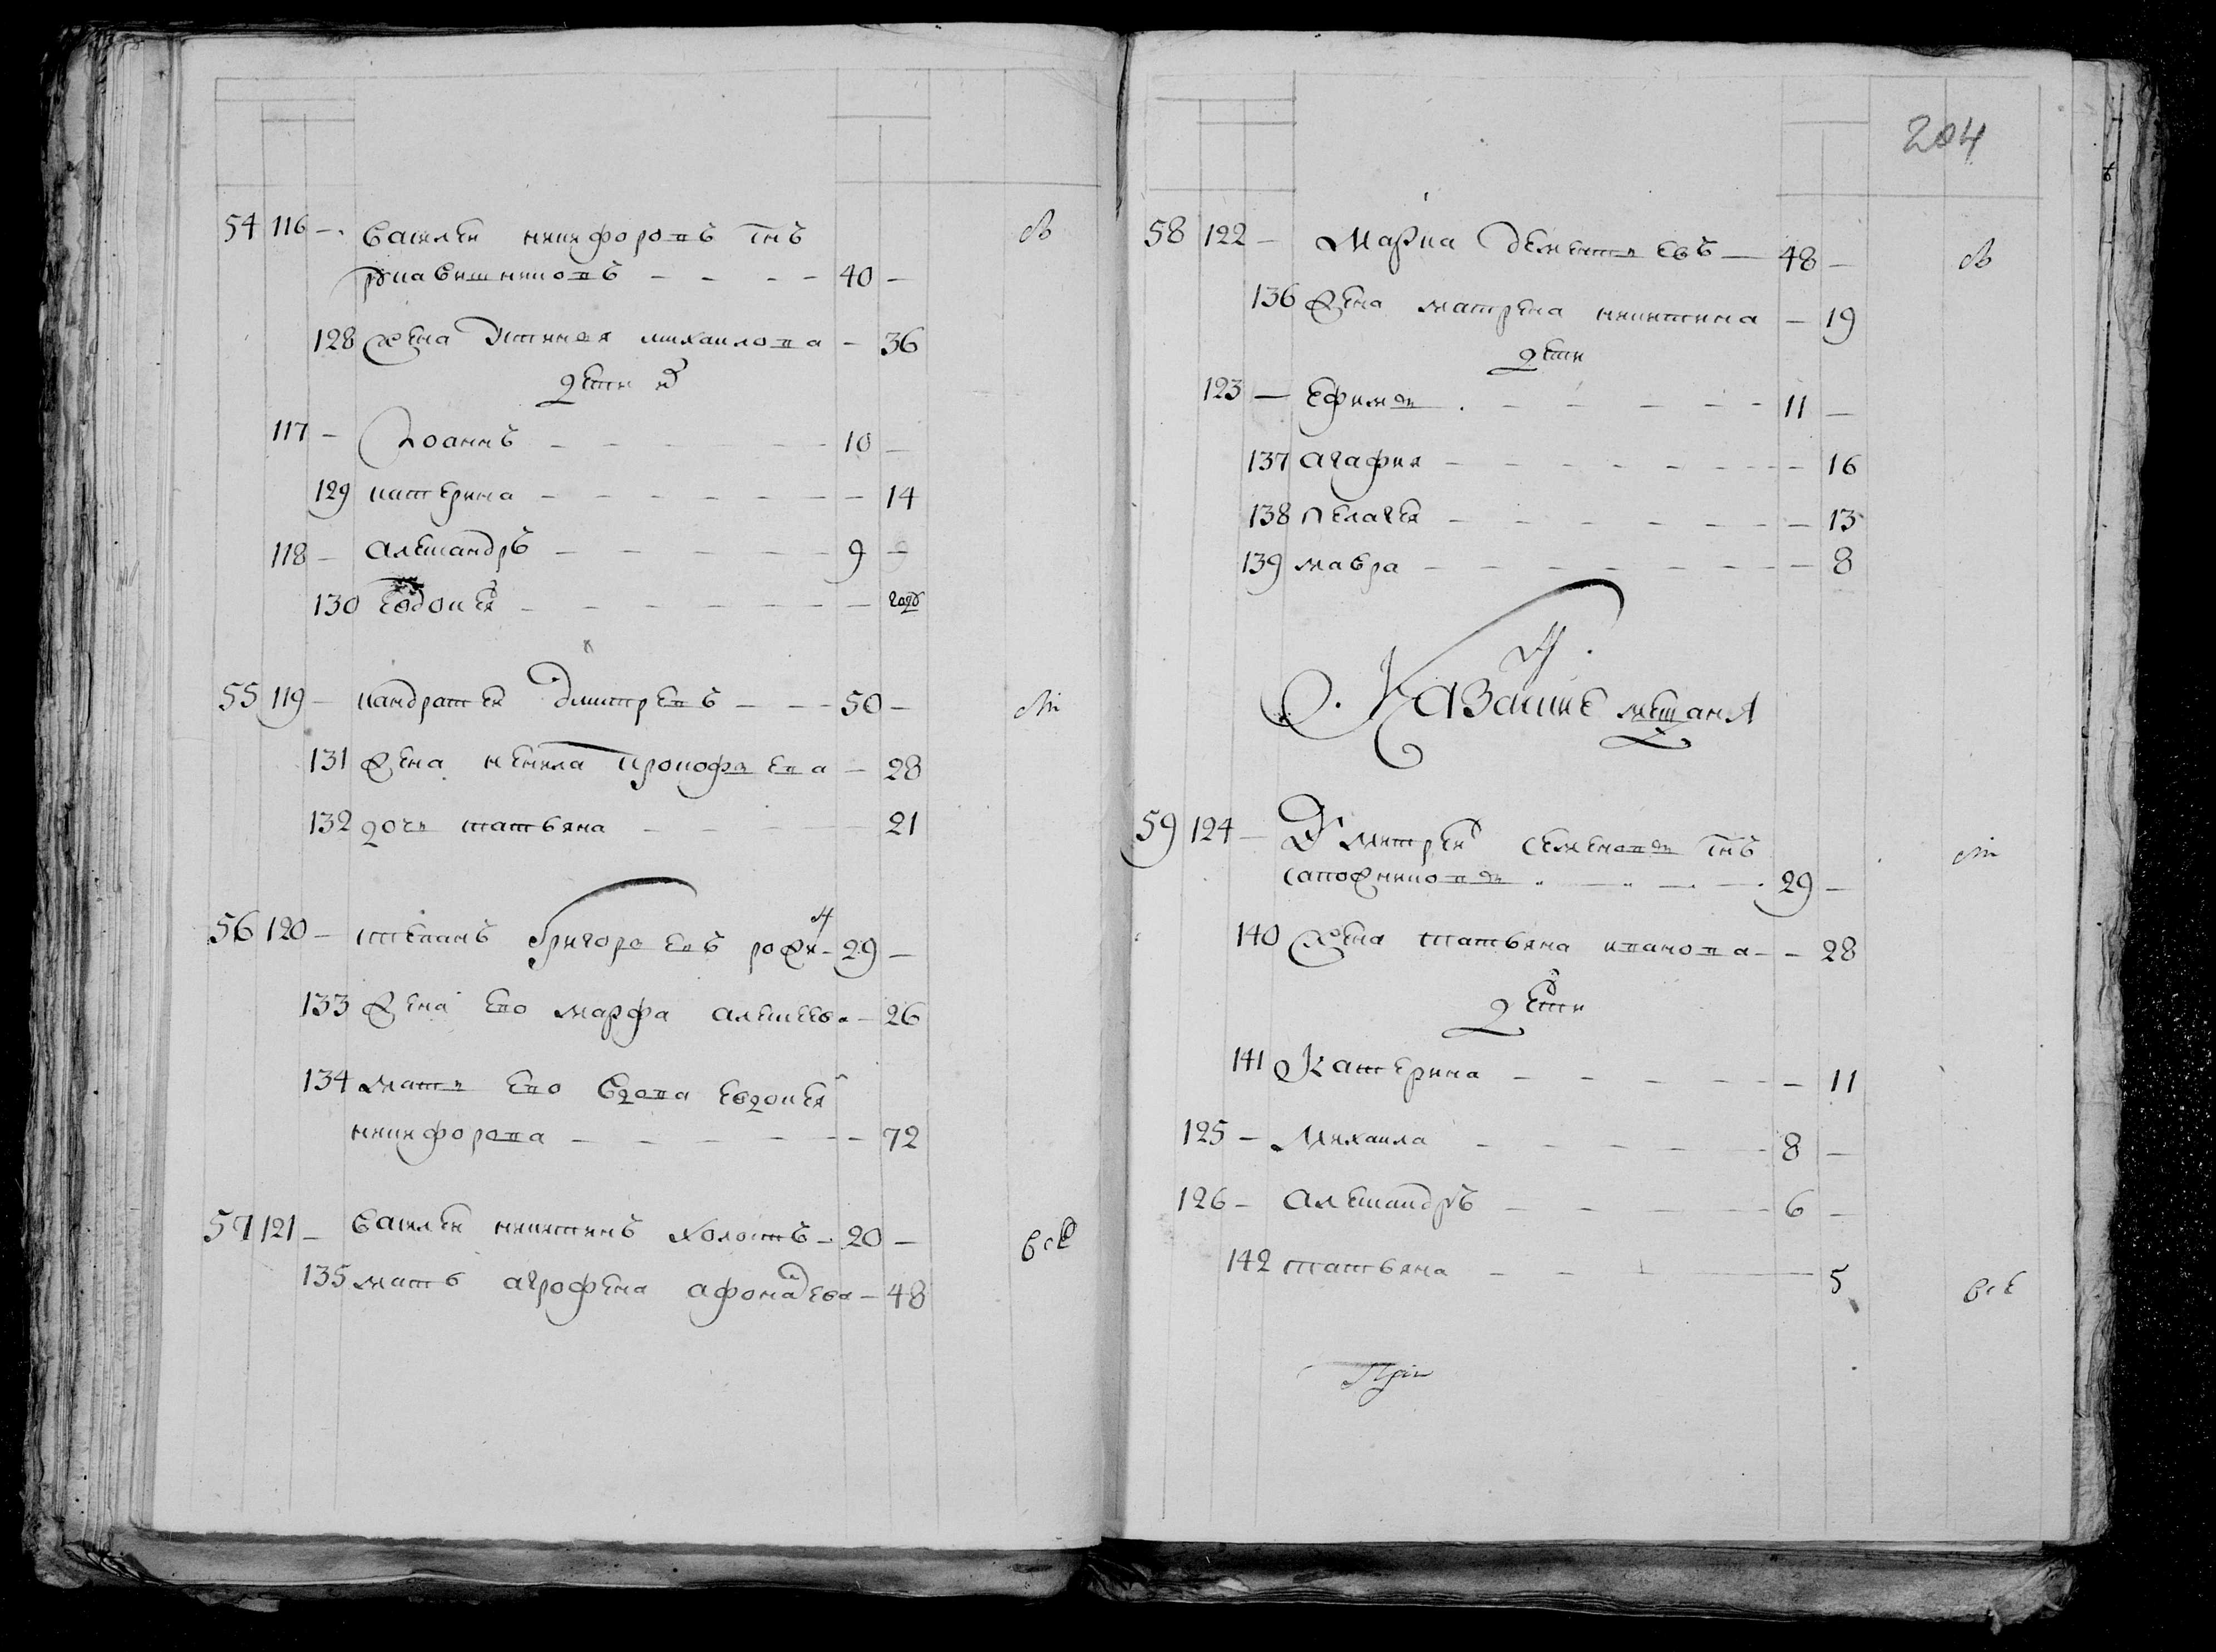 54 116 - Василей никифоровъ снъ
рукавишниковъ - - - - 40 -
128 Жена Устинья михаилова - 36
дети их
117 - Иоаннъ - - - - - 10 -
129 катерина - - - - - - 14
118 - александръ - - - - - 9 -
130 Евдокея - - - - - - годъ
55 119 - кандратей дмитревъ - - - 50 -
131 Жена ненила прокофьева - 28
132 дочь татьяна - - - - 21
56 120 - степанъ Григорьевъ - 29 -
133 Жена Ево марфа алексеева - 26
134 мать Ево вдова Евдокея
никифорова - - - - - - 72
57 121 - василей никитинъ холостъ - 20 -
135 мать агрофена афонасева - 48
всѣ
204
58 122 - Марка дементьевъ - 48 -
136 Жена матрена никитина - 19
дети
123 - Ефимъ - - - - - 11 -
137 агафия - - - - - - - 16
138 пелагея - - - - - - - 13
139 мавра - - - - - - - 8
Казанские мещаня
59 124 - Дмитрей семеновъ снъ
сапожниковъ - - - - 29 -
140 Жена татьяна иванова - - 28
дети
141 Катерина - - - - - - 11
125 - Михаила - - - - - 8 -
126 - александръ - - - - 6 -
142 татьяна - - - - 5
всѣ